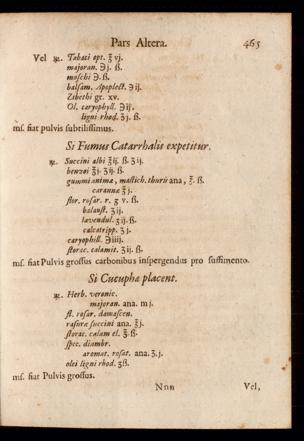 Pars Altera. 465
Vel ℞. Tabaci opt. ℥vj.
majoran. ℈j. ß.
moschi ℈. ß.
balsam. Apoplect. ℈ij.
Zibethi gr. xv.
Ol. caryophyll. ℈ij.
ligni rhod. ʒj. ß.
mſ. fiat pulvis subtilissimus.
Si Fumus Catarrhalis expetitur.
℞. Succini albi ℥ij. ß. ʒij.
benzoi ℥j. ʒij. ß.
gummi animæ, mastich. thuris ana, ℥. ß.
carannæ ℥j.
flor. rosar. r. ʒ v. ß.
balaust. ʒij.
lavendul. ʒij. ß.
calcatripp. ʒj.
caryophyll. ℈iiij.
storac. calamit. ʒij. ß.
mſ. fiat Pulvis grossus carbonibus inspergendus pro suffimento.
Si Cucuphæ placent.
℞. Herb. veronic.
majoran. ana. mj.
fl. rosar. damascen.
rasuræ succini ana. ℥j.
storac. calam el. ℥. ß.
spec. diambr.
aromat. rosat. ana. ʒ.j.
olei ligni rhod. ʒß.
mſ. fiat Pulvis grossus.
Nnn Vel,